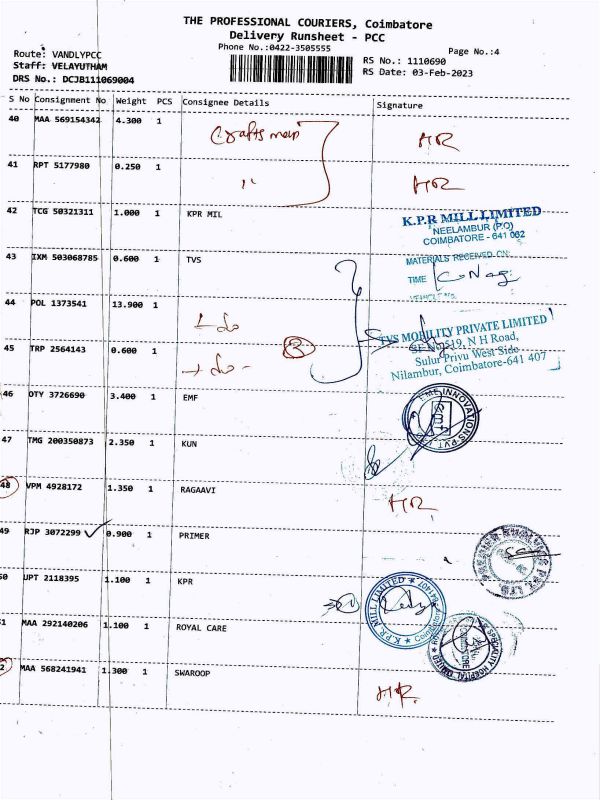 THE PROFESSIONAL COURIERS, Coimbatore
Delivery Runsheet - PCC
Phone No.:0422-3505555
Page No.:4
Route: VANDLYPCC
Staff: VELAYUTHAM
DRS No.: DCJB111069004
RS No.: 1110690
RS Date: 03-Feb-2023
S No Consignment No Weight PCS Consignee Details Signature
40 MAA 569154342 4.300 1 Craftsman HR
41 RPT 5177980 0.250 1 " HR
42 TCG 50321311 1.000 1 KPR MIL
K.P.R MILL LIMITED
NEELAMBUR (P.O)
COIMBATORE - 641 062
43 IXM 503068785 0.600 1 TVS
MATERIALS RECEIVED ON:
TIME
VEHICLE No.
44 POL 1373541 13.900 1
TVS MOBILITY PRIVATE LIMITED
SF No 519, N H Road,
Sulur Privu West Side
Nilambur, Coimbatore-641 407
45 TRP 2564143 0.600 1 3
46 OTY 3726690 3.400 1 EMF
EMF INNOVATIONS PVT
47 TMG 200350873 2.350 1 KUN
48 VPM 4928172 1.350 1 RAGAAVI HR
49 RJP 3072299 ✓ 0.900 1 PRIMER
50 UPT 2118395 1.100 1 KPR
K.P.R. MILL LIMITED
Coimbatore
51 MAA 292140206 1.100 1 ROYAL CARE
SPECIALITY HOSPITAL LIMITED
COIMBATORE
52 MAA 568241941 1.300 1 SWAROOP HR